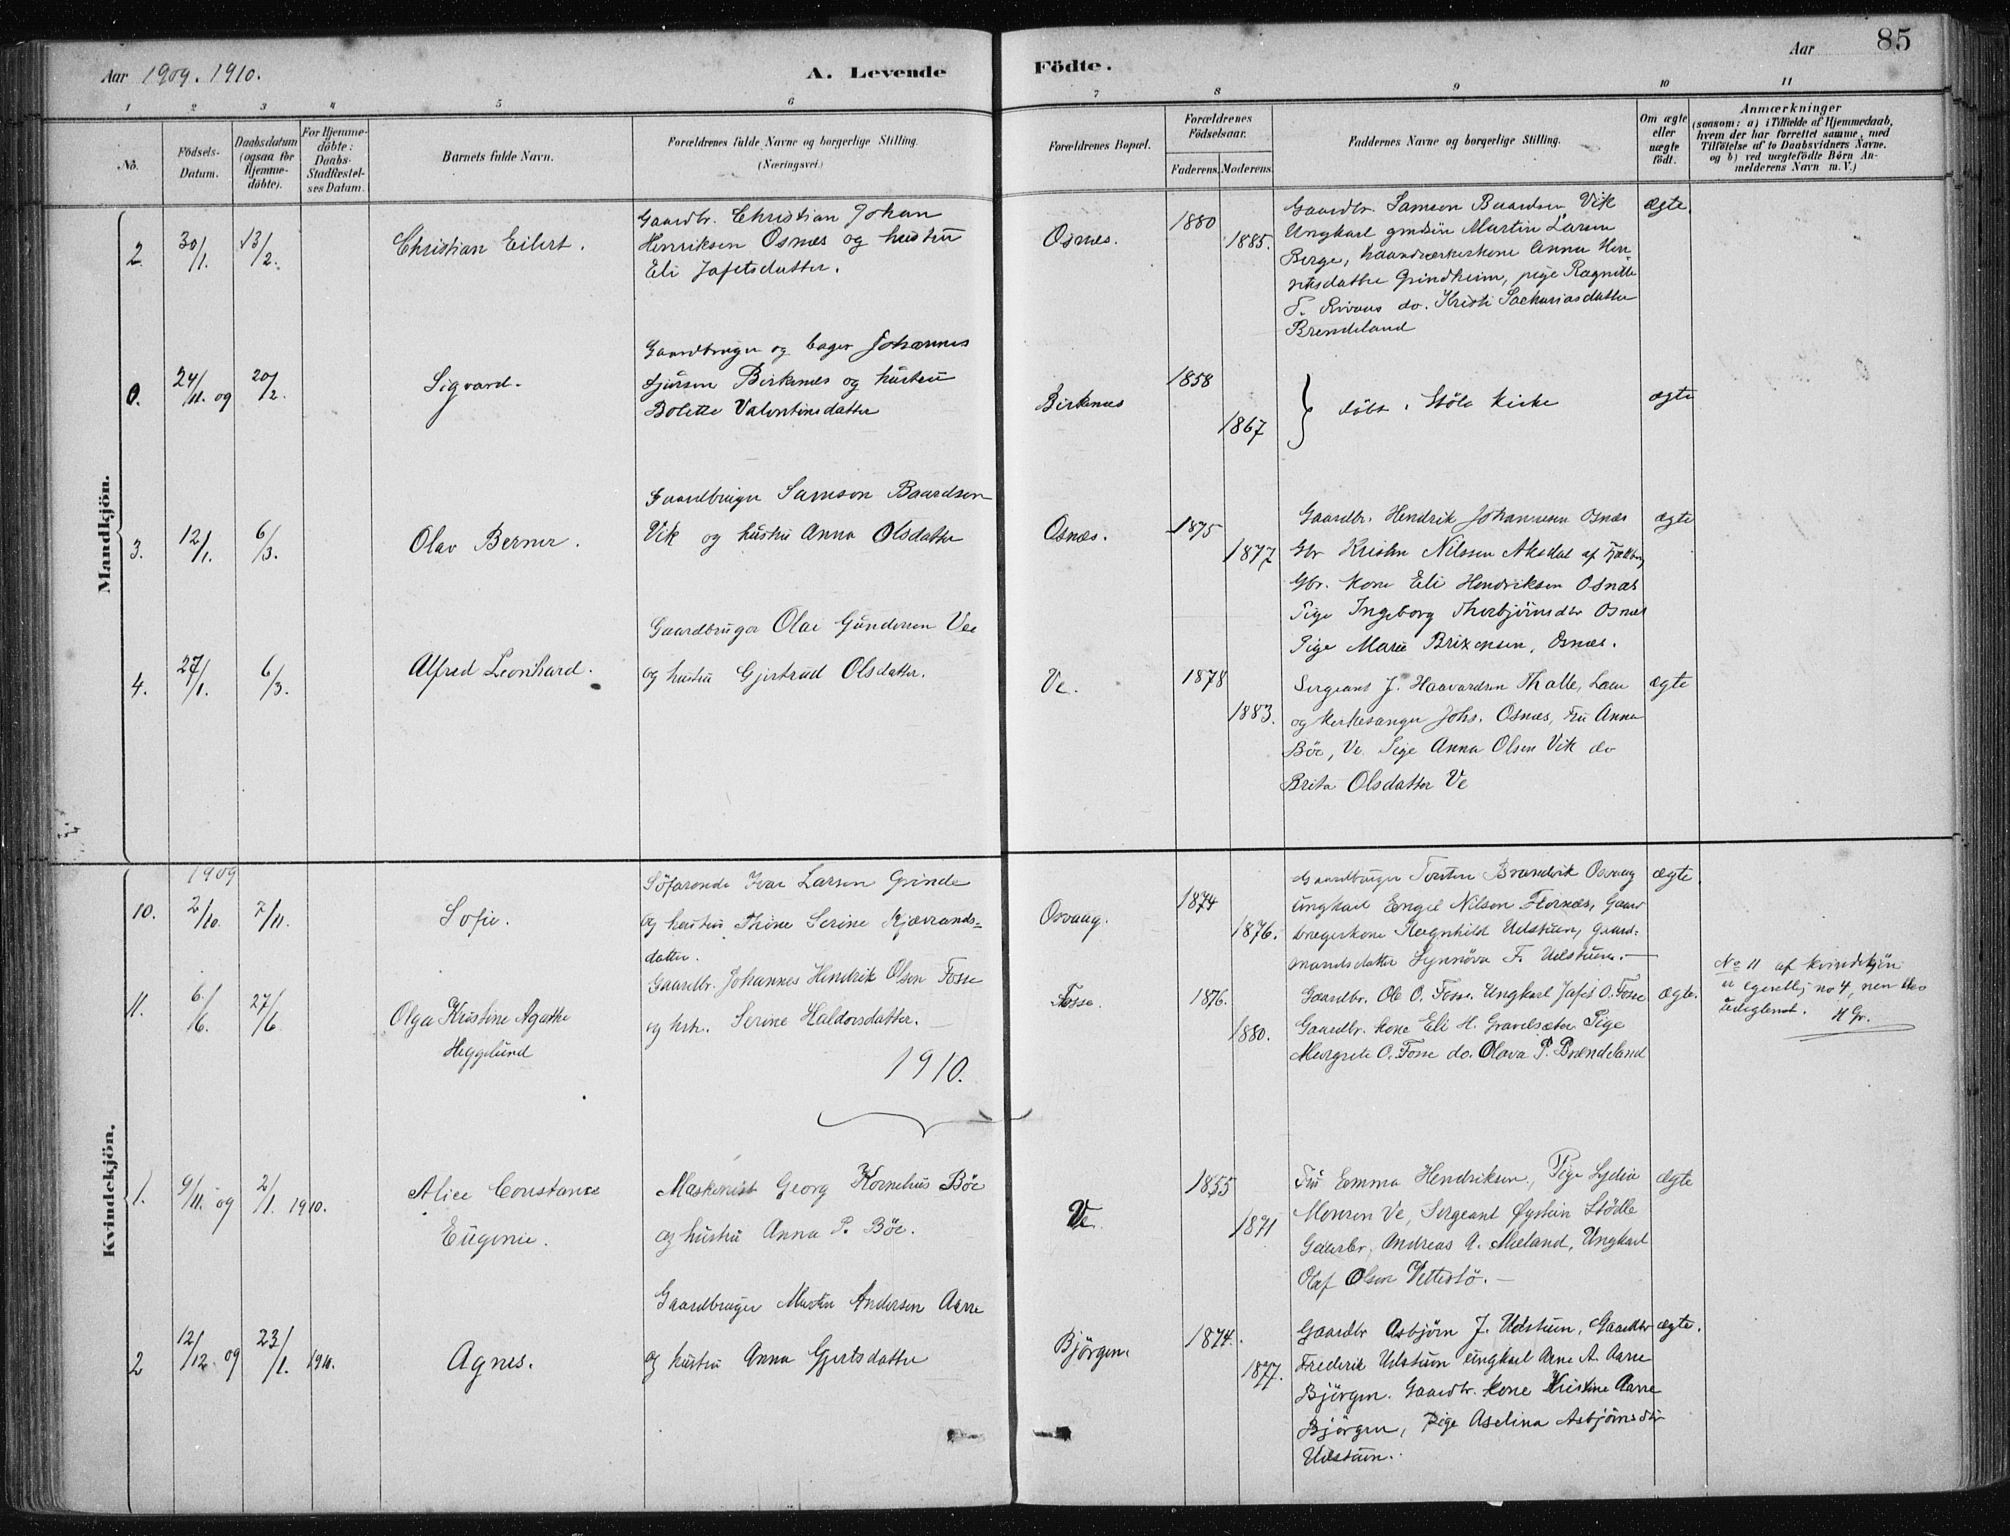 Aar 1909. 1910.
A. Levende
Födte.
Aar
85
1 2 3 4 5 6 7 8 9 10 11
No.
Födsels-
Datum.
Daabsdatum
(ogsaa for
Hjemme-
döbte).
For Hjemme-
döbte:
Daabs-
Stadfæstel-
ses Datum.
Barnets fulde Navn.
Forældrenes fulde Navne og borgerlige Stilling.
(Næringsvei.)
Forældrenes Bopæl.
Forældrenes
Födselsaar.
Faderens. Moderens.
Faddernes Navne og borgerlige Stilling.
Om ægte
eller
uægte
födt.
Anmærkninger
(saasom: a) i Tilfælde af Hjemmedaab,
hvem der har forrettet samme, med
Tilföielse af to Daabsvidners Navne.
og b) ved uægtefödte Börn An-
melderens Navn m. V.)
Mandkjön.
2. 30/1. 13/2.
Christian Eilert.
Gaardbr. Christian Johan
Henriksen Osnæs og hustru
Eli Jafetsdatter.
Osnæs.
1880
1885.
Gaardbr. Samson Baardsen Vik
Ungkarl Martin Larsen
Berge, haandværkerkone Anna Hen-
riksdatter Grindheim, pige Ragnilde
do. Kristi Sachariasdatter
Brendeland
ægte.
0. 24/11. og 20/2.
Sigvard.
Gaardbruger og bager Johannes
Sjursen Birkenæs og hustru
Bolette Valentinsdatter
Birkenæs
1858
1867
döbt i Stöle Kirke
ægte
3. 12/1. 6/3.
Olav Berner.
Gaardbruger Samson Baardsen
Vik og hustru Anna Olsdatter
Osnæs.
1875
1877
Gaardbr. Hendrik Johannesen Osnæs
Gbr Nilssen Aksdal af
Gbr. kone Eli Hendriksen Osnæs
Pige Ingeborg Thorbjörnsdtr Osnæs
Pige Marie Brixensen, Osnæs.
ægte
4. 27/1. 6/3.
Alfred Leonhard.
Gaardbruger Olai Gundersen Vee
og hustru Gjertrud Olsdatter.
Ve.
1878
1883.
Sergeant J. Haavardsen Thalle, Lærer
og kirkesanger Johs. Osnæs, Fru Anna
Böe, Ve. Pige Anna Olsen Vik do
Brita Olsdatter Ve
ægte
Kvindekjön.
1909
10. 2/10. 7/11.
Sofie.
Söfarende Ivar Larsen Grinde
og hustru Thine Serine Kjævrands-
datter.
Osvaag.
1874
1876.
Gaardbruger Brandvik Osvaag
Ungkarl Engel Nilsen Flornæs, Gaard
brugerkone Ragnhild Udstuen, Gaard-
mandsdatter Synnöva F. Udstuen.
ægte.
11. 6/6. 27/6
Olga Kristine Agathe
Heggelund
Gaardbr. Johannes Hendrik Olsen Fosse
og hstr. Serine Haldorsdatter.
Fosse.
1876.
1880.
Gaardbr. Ole O. Fosse. Ungkarl Jafet O. Fosse
Gaardbr. kone Eli H. Gravelsæter Pige
Margrete O. Fosse do. Olava P. Brændeland
ægte.
No 11 af kvindekjön
er egentlig no 4, men blev
udeglemt. H Gr.
1910.
1. 9/11. og 2/1. 1910.
Alice Constance
Eugenie.
Maskinist Georg Kornelius Böe
og hustru Anna P. Böe.
Ve.
1855
1871
Fru Emma Hendriksen, Pige Lydia
Monsen Ve, Sergeant Øystein Stödle
Andreas A. Mæland, Ungkarl
Olaf Olsen Vettestö.
ægte
2 12/12. og 23/1. 1910.
Agnes.
Gaardbruger Martin Andersen Aarre
og hustru Anna Gjertsdatter
Björgen.
1874.
1877.
Gaardbr Asbjörn J. Udstuen, Gaardbr
Frederik Udstuen Ungkarl Arne A. Aarre
Björgen. Gaardbr. kone Kristine Aarre
Björgen, Pige Aselina Asbjörnsdtr
Udstuen.
ægte.